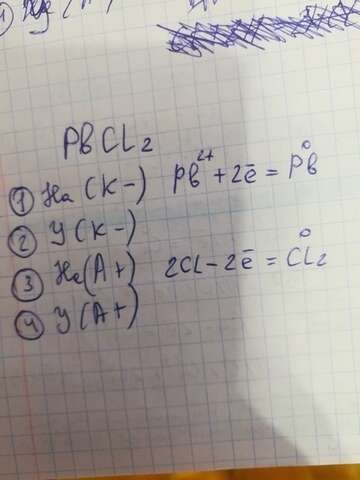 PbCl2
① На (К-) Pb²⁺ + 2ē = Pb⁰
② У (К-)
③ На (А+) 2Cl - 2ē = Cl⁰2
④ У (А+)